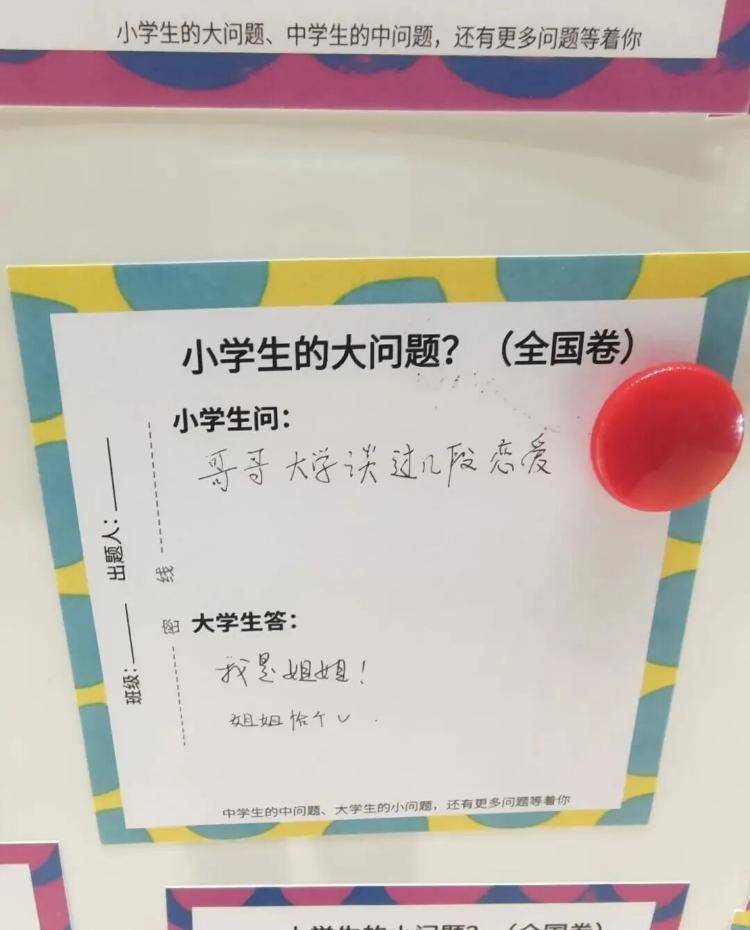 小学生的大问题、中学生的中问题，还有更多问题等着你
小学生的大问题？（全国卷）
小学生问：
哥哥大学谈过几段恋爱
出题人：
线
密
班级：
大学生答：
我是姐姐！
姐姐恰个V.
中学生的中问题、大学生的小问题，还有更多问题等着你